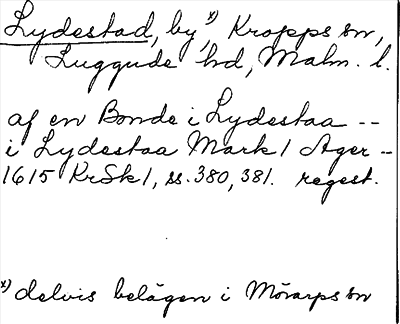 Lydestad, by,ˣ⁾ Kropps sn,
Luggude hd, Malm. l.
af en Bonde i Lydestaa --
i Lydestaa Mark / Ager --
1615 KrSk 1, ss. 380, 381. regest.
ˣ⁾ delvis belägen i Mörarps sn